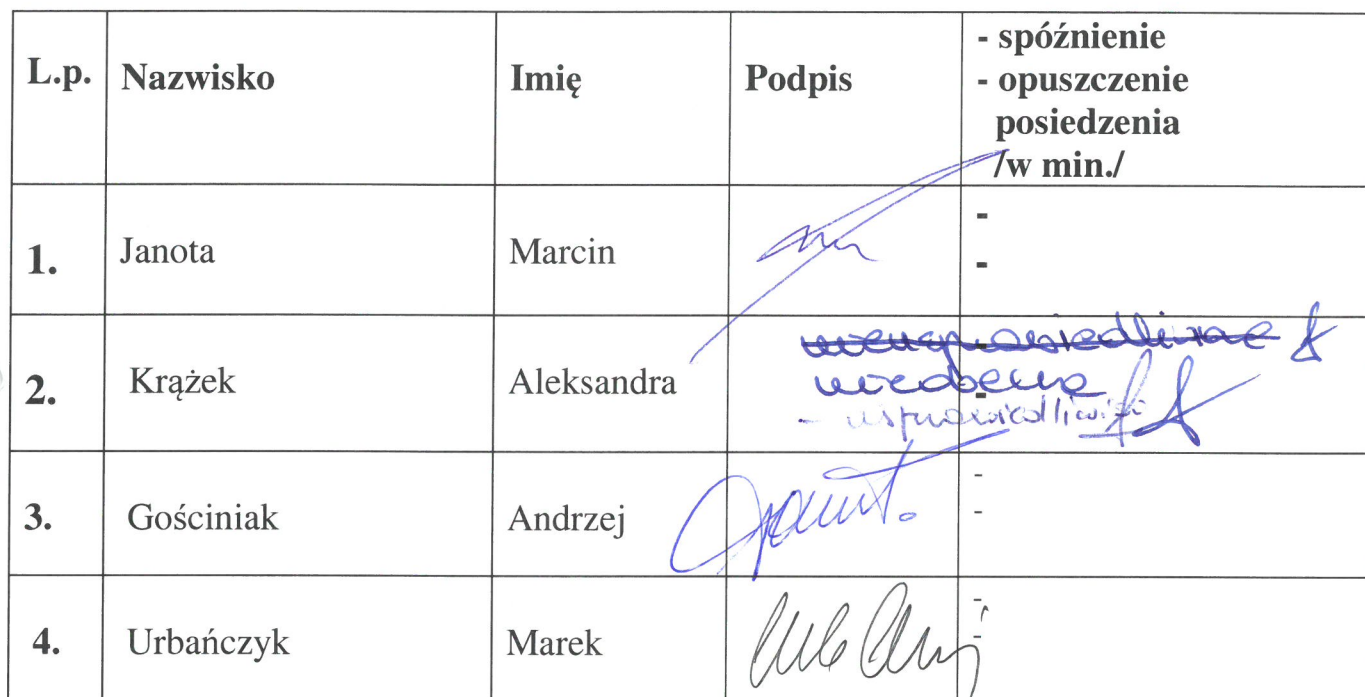 L.p. Nazwisko Imię Podpis - spóźnienie
- opuszczenie
posiedzenia
/w min./
1. Janota Marcin -
-
2. Krążek Aleksandra
nieobecna
- usprawiedliwiość
3. Gościniak Andrzej -
-
4. Urbańczyk Marek -
-